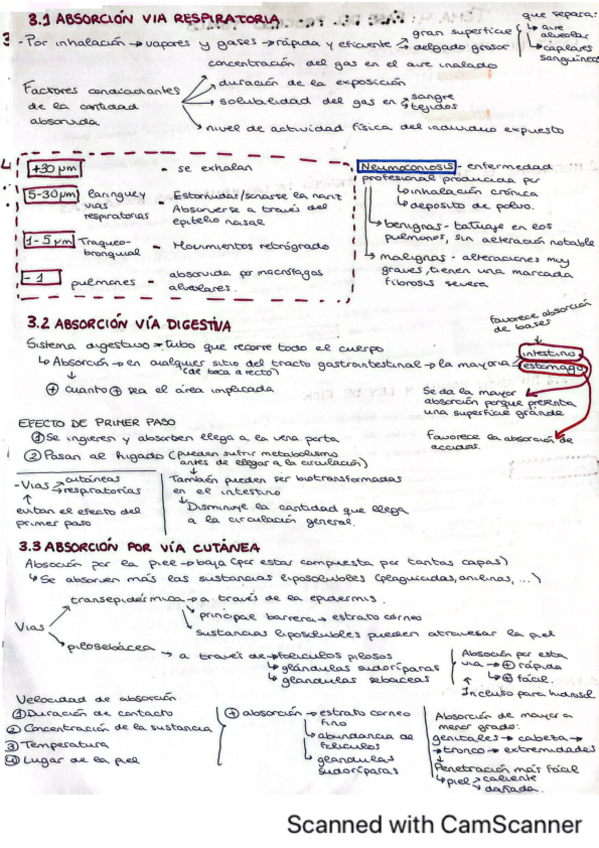 3.1 ABSORCIÓN VIA RESPIRATORIA
- Por inhalación → vapores y gases → rápida y eficiente
gran superficie
delgado grosor
que separa:
aire alveolar
capilares sanguíneos
Factores condicionantes de la cantidad absorvida
concentración del gas en el aire inalado
duración de la exposición
solubalidad del gas en
sangre
tejidos
nivel de actividad física del individuo expuesto
+30 µm - se exhalan
5-30µm laringue y vias respiratorias - Estornudar/sonarse la nariz
Absorverse a través del epitelio nasal
1-5 µm Traqueo-bronquial - Movimientos retrógrado
-1 pulmones - absorvida por macrófagos alveolares.
Neumoconiosis - enfermedad profesional producida por
inhalación crónica
deposito de polvo.
benignas - tatuaje en los pulmones, sin alteración notable
malignas - alteraciones muy graves, tienen una marcada fibrosis severa
3.2 ABSORCIÓN VÍA DIGESTIVA
Sistema digestivo = tubo que recorre todo el cuerpo
↳ Absorción → en cualquier sitio del tracto gastrointestinal → la mayoría
(de boca a recto)
+ cuanto + sea el área implicada
favorece absorción de bases
intestino
estomago
Se da la mayor absorción porque presenta una superficie grande
favorece la absorción de acidas.
EFECTO DE PRIMER PASO
① Se ingieren y absorben llega a la vena porta
② Pasan al higado (pueden sufrir metabolismo antes de llegar a la circulación)
- Vias
cutáneas
respiratorias
evitan el efecto del primer paso
También pueden ser biotransformadas en el intestino
↳ Disminuye la cantidad que llega a la circulación general.
3.3 ABSORCIÓN POR VÍA CUTÁNEA
Absoción por la piel → baja (por estar compuesta por tantas capas)
↳ Se absorven más las sustancias liposolubles (plaguicidas, anilinas, ...)
Vias
transepidérmica → a través de la epidermis.
principal barrera → estrato córneo
sustancias liposolubles pueden atravesar la piel
pilosebácea → a través de → foliculos pilosos
↳ glándulas sudoríparas
↳ glandulas sebaceas
Absoción por esta via → + rápida
↳ + fácil.
Incluso para hidrosol
Velocidad de absorción
① Duración de contacto
② Concentración de la sustancia
③ Temperatura
④ Lugar de la piel
+ absorción → estrato corneo fino
↳ abundancia de foliculos
↳ glandulas sudoríparas
Absorción de mayor a menor grado:
genitales → cabeza → → tronco → extremidades
Penetración más fácil
↳ piel
caliente
dañada.
Scanned with CamScanner